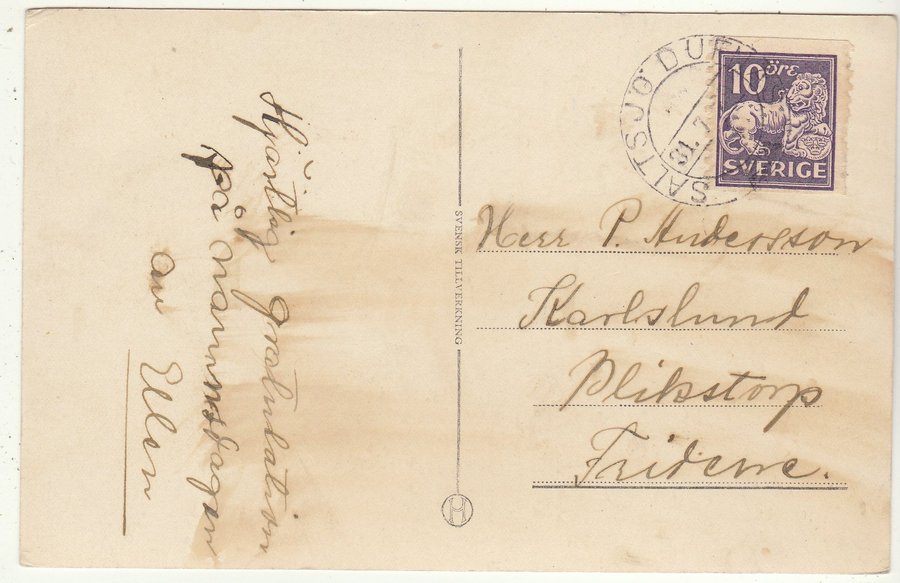 Hjärtlig gratulation
på namnsdagen
av
Ellen
SVENSK TILLVERKNING
SALTSJÖ DUF
31.7
10 öre
SVERIGE
Herr P. Andersson
Karlslund
Blikstorp
Fridene.